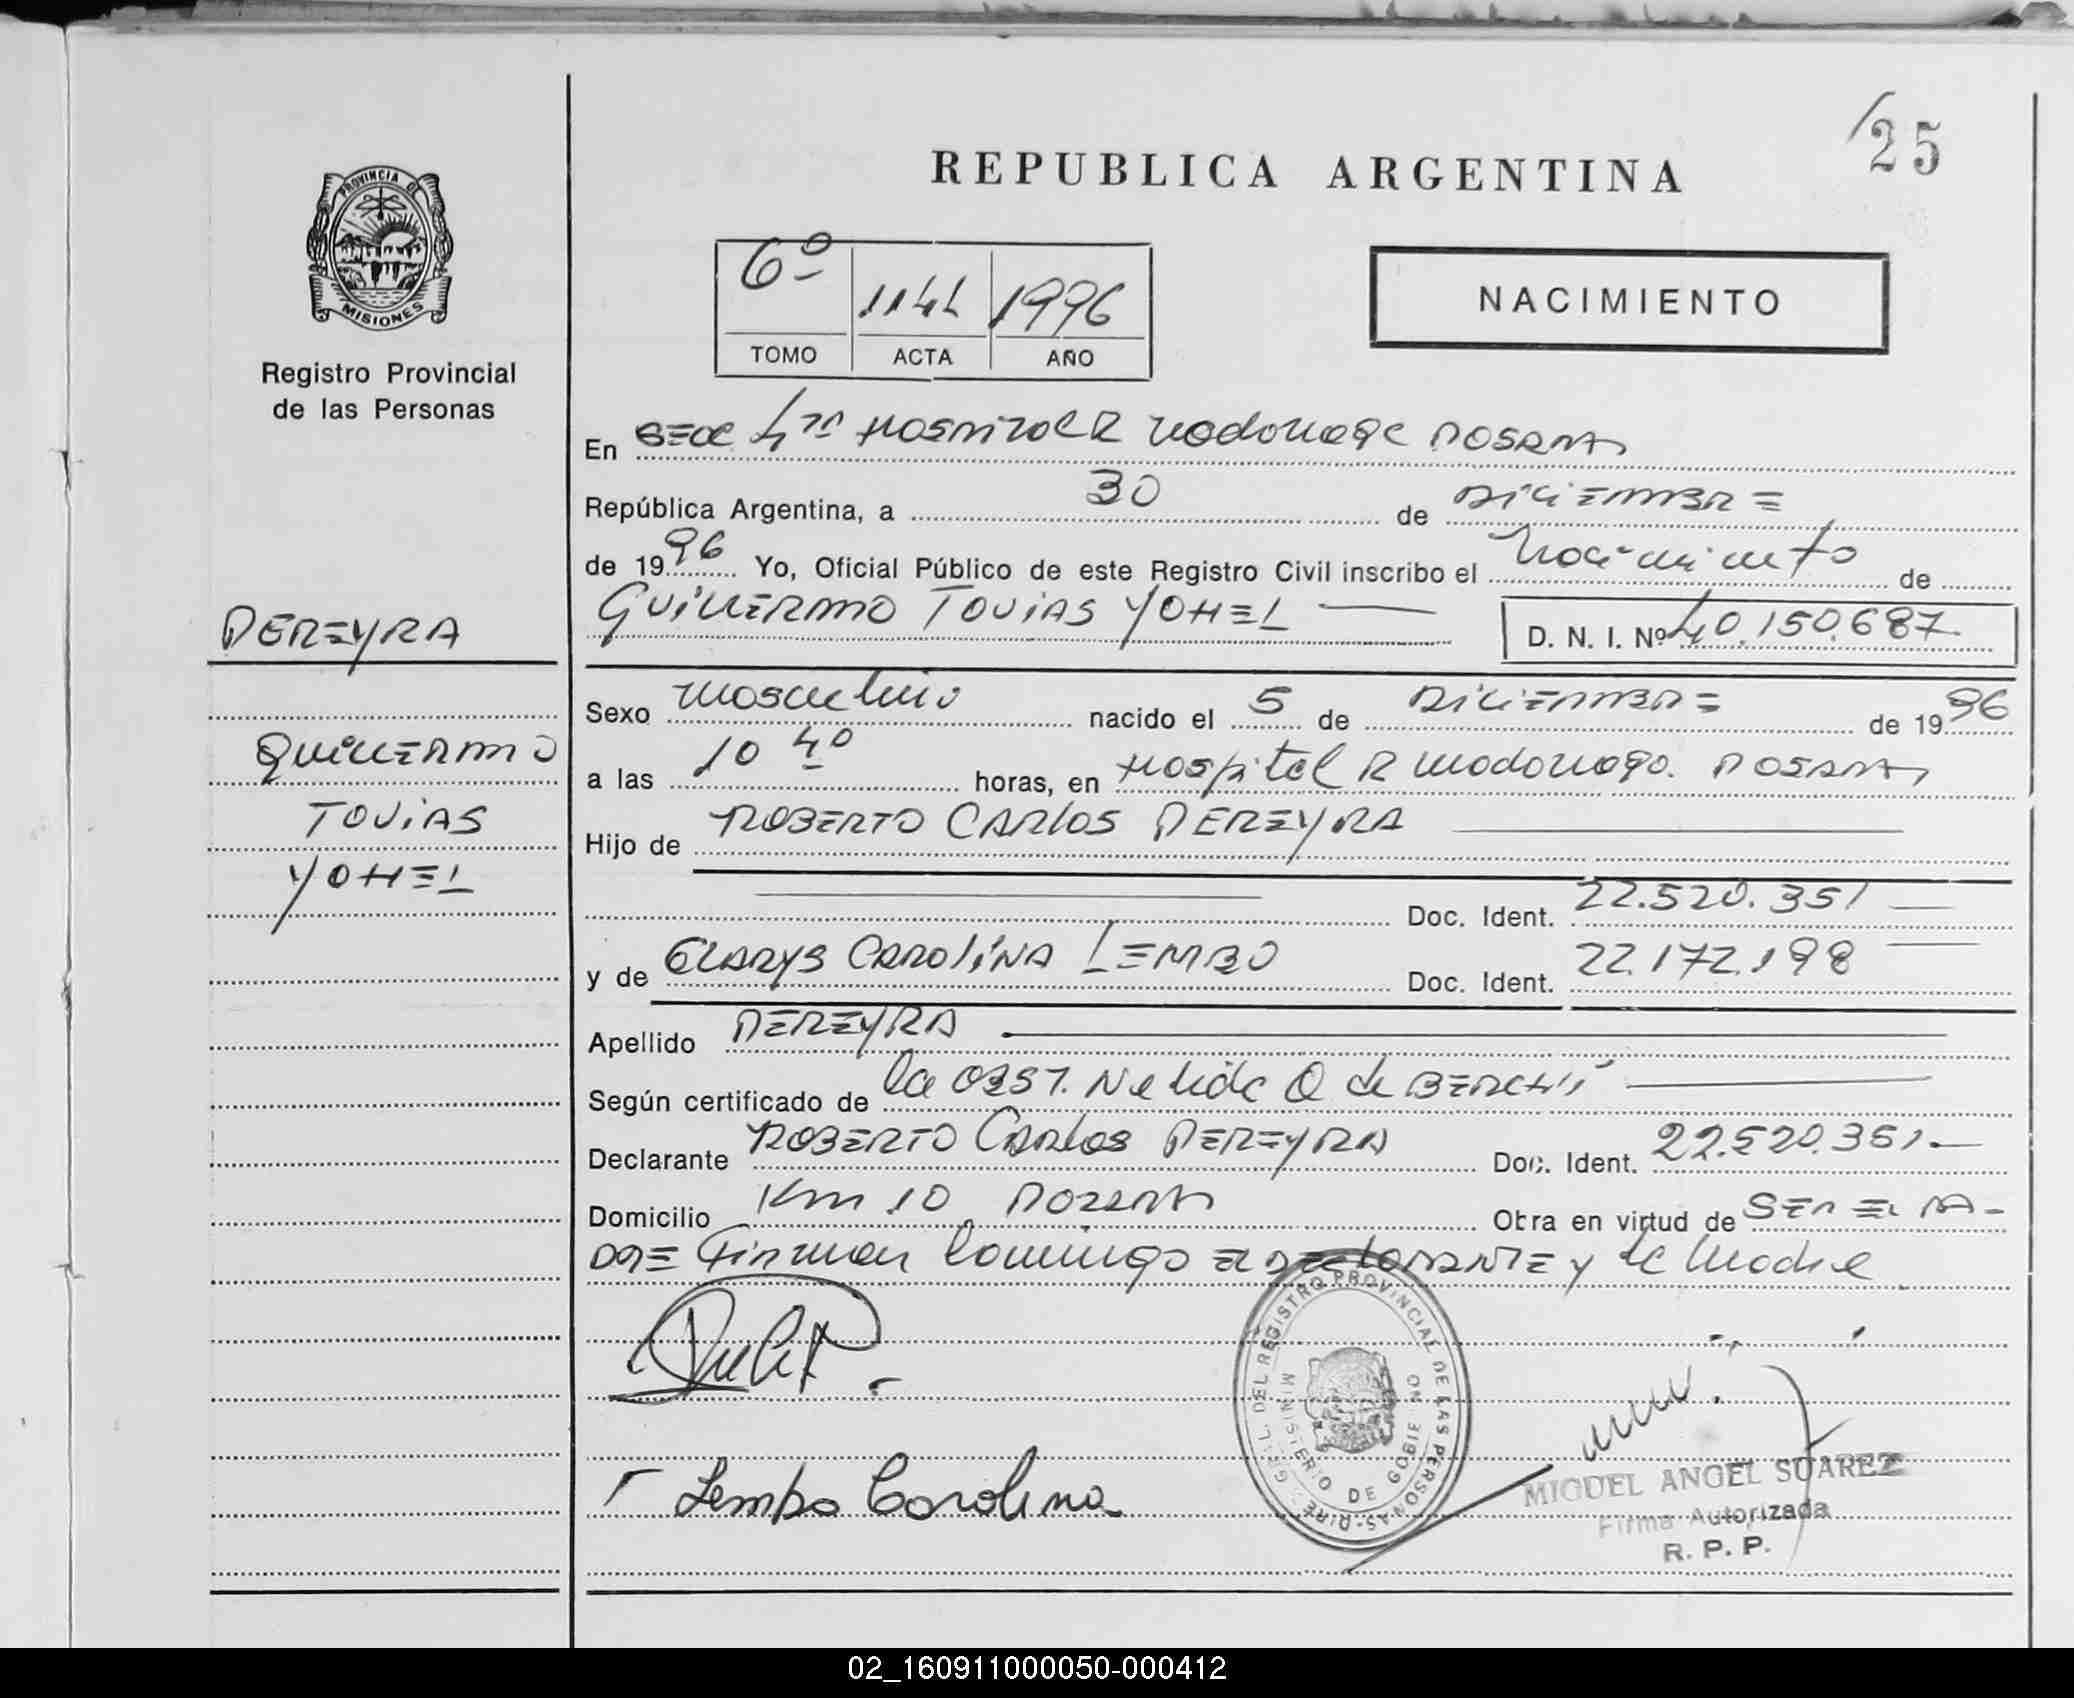 125
REPUBLICA ARGENTINA
PROVINCIA DE
MISIONES
Registro Provincial
de las Personas
6º 1144 1996
TOMO ACTA AÑO
NACIMIENTO
En Secc 4ta Hospital R Madariaga Posadas
República Argentina, a 30 de Diciembre
de 1996 Yo, Oficial Público de este Registro Civil inscribo el Nacimiento de
PEREYRA
GUILLERMO TOVIAS YOHEL
D. N. I. Nº 40.150.687
Sexo Masculino nacido el 5 de DICIEMBRE de 1996
GUILLERMO
TOVIAS
YOHEL
a las 10 40 horas, en Hospital R Madariaga. POSADAS
Hijo de ROBERTO CARLOS PEREYRA
Doc. Ident. 22.520.351
y de GLADYS CAROLINA LEMBO Doc. Ident. 22.172.198
Apellido PEREYRA
Según certificado de la OBST. Nelida O de
Declarante ROBERTO CARLOS PEREYRA Doc. Ident. 22.520.351.-
Domicilio Km 10 POSADAS Obra en virtud de SER EL PA-
DRE Firman conmigo EL DECLARANTE y la Madre
Lembo Carolina
DIRE. GRAL. DEL REGISTRO PROVINCIAL DE LAS PERSONAS
MINISTERIO DE GOBIERNO
MIGUEL ANGEL SUAREZ
Firma Autorizada
R. P. P.
02_160911000050-000412